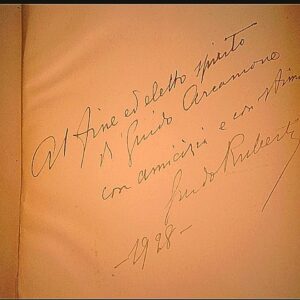 Al fine ed eletto spirito
di Guido Arcamone
con amicizia e con stima
Guido Ruberti
- 1928 -